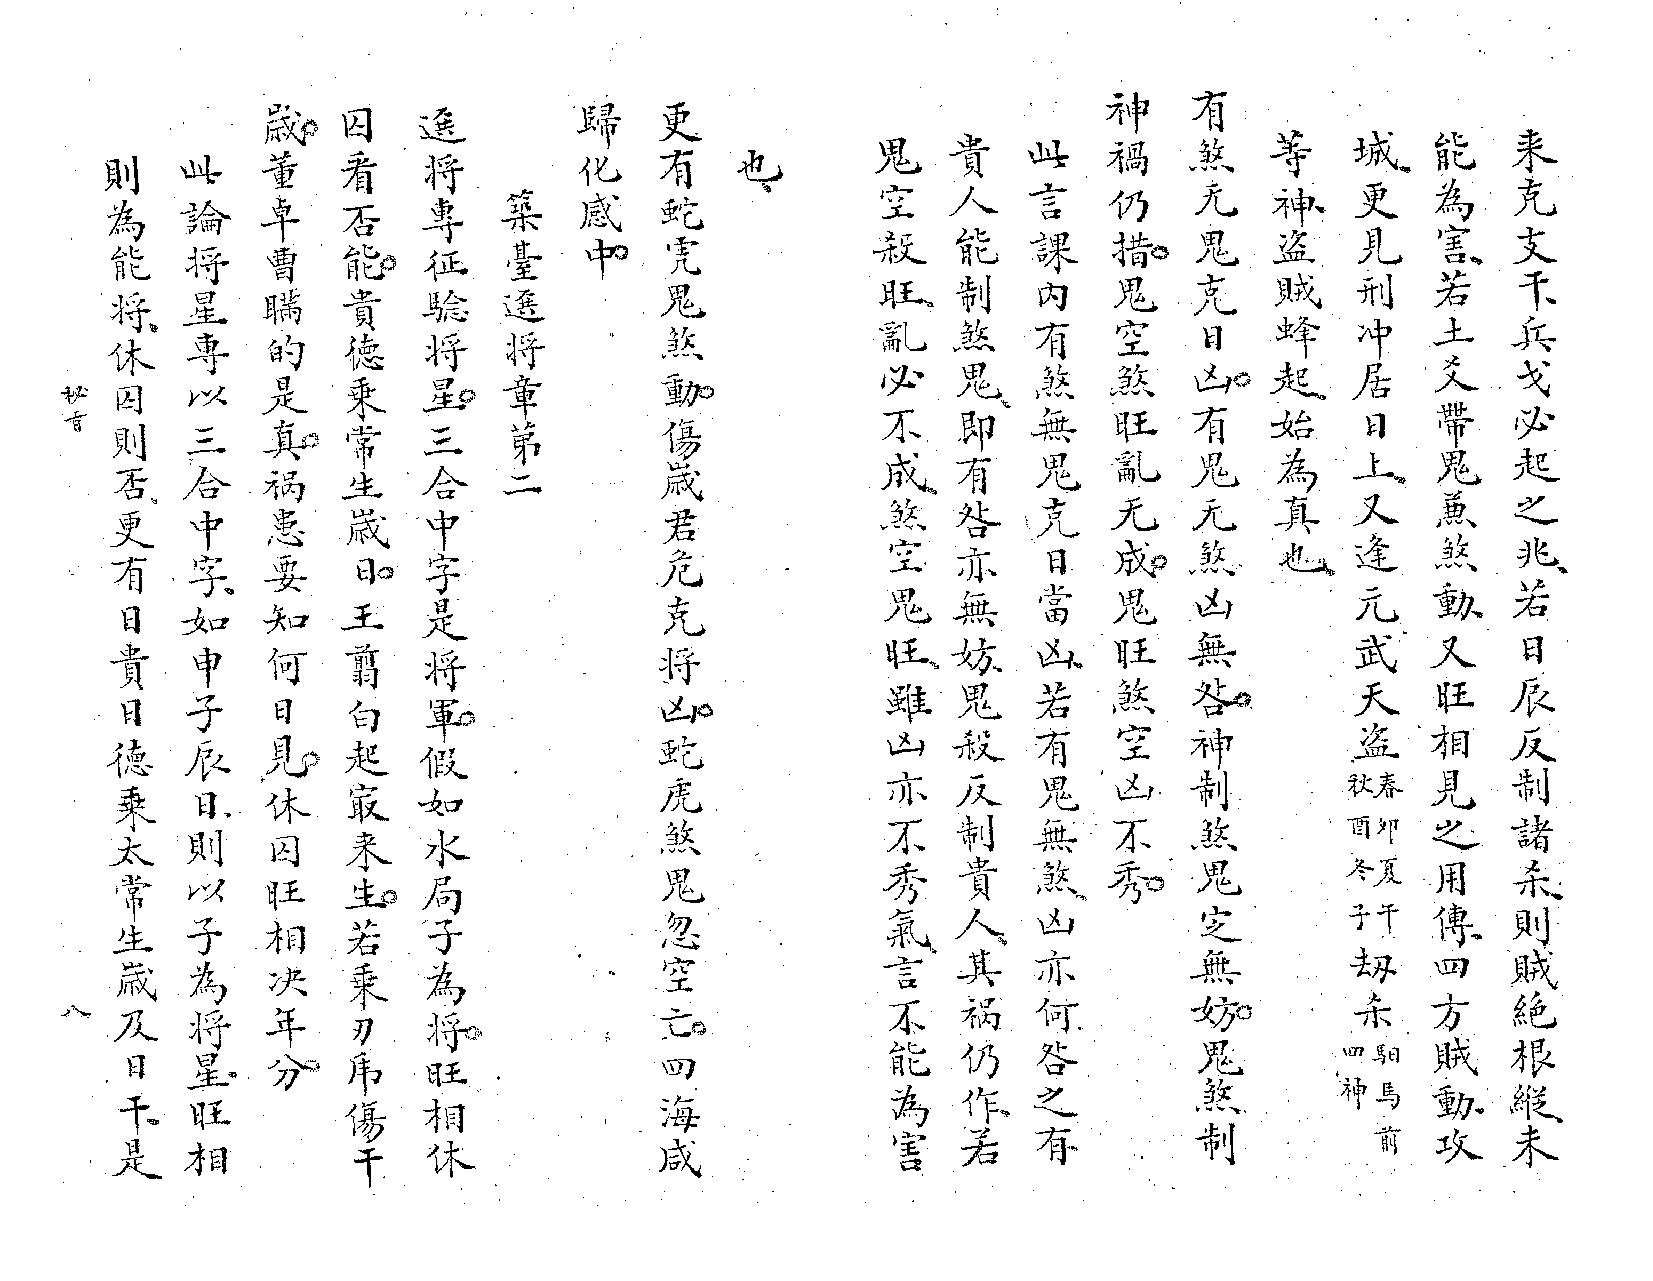 来克支干、兵戈必起之兆、若日辰反制諸杀、則賊絶根縱、未
能為害、若土爻帶鬼兼煞動、又旺相見之用傳、四方賊動、攻
城、更見刑冲居日上、又逢元武天盗春卯夏午秋酉冬子劫杀馹馬前四神
等神、盗賊蜂起、始為真也、
有煞无鬼克日凶。有鬼无煞凶無咎。神制煞鬼定無妨。鬼煞制
神禍仍措。鬼空煞旺亂无成。鬼旺煞空凶不秀。
此言課内有煞無鬼克日當凶、若有鬼無煞、凶亦何咎之有
貴人能制煞鬼、即有咎亦無妨、鬼殺反制貴人、其祸仍作、若
鬼空殺旺、亂必不成、煞空鬼旺、雖凶亦不秀氣、言不能為害
也、
更有蛇虎鬼煞動。傷歲君危克将凶。蛇虎煞鬼忽空亡。四海咸
歸化感中。
築臺選将章第二
選将專征騐将星。三合中字是将軍。假如水局子為将。旺相休
囚看否能。貴德乘常生歲日。王翦白起㝡来生。若乘刃虎傷干
歲。董卓曹瞞的是真。祸患要知何日見。休囚旺相决年分。
此論将星專以三合中字、如申子辰日、則以子為将星、旺相
則為能将、休囚則否、更有日貴日德乘太常生歲及日干、是
秘言
八